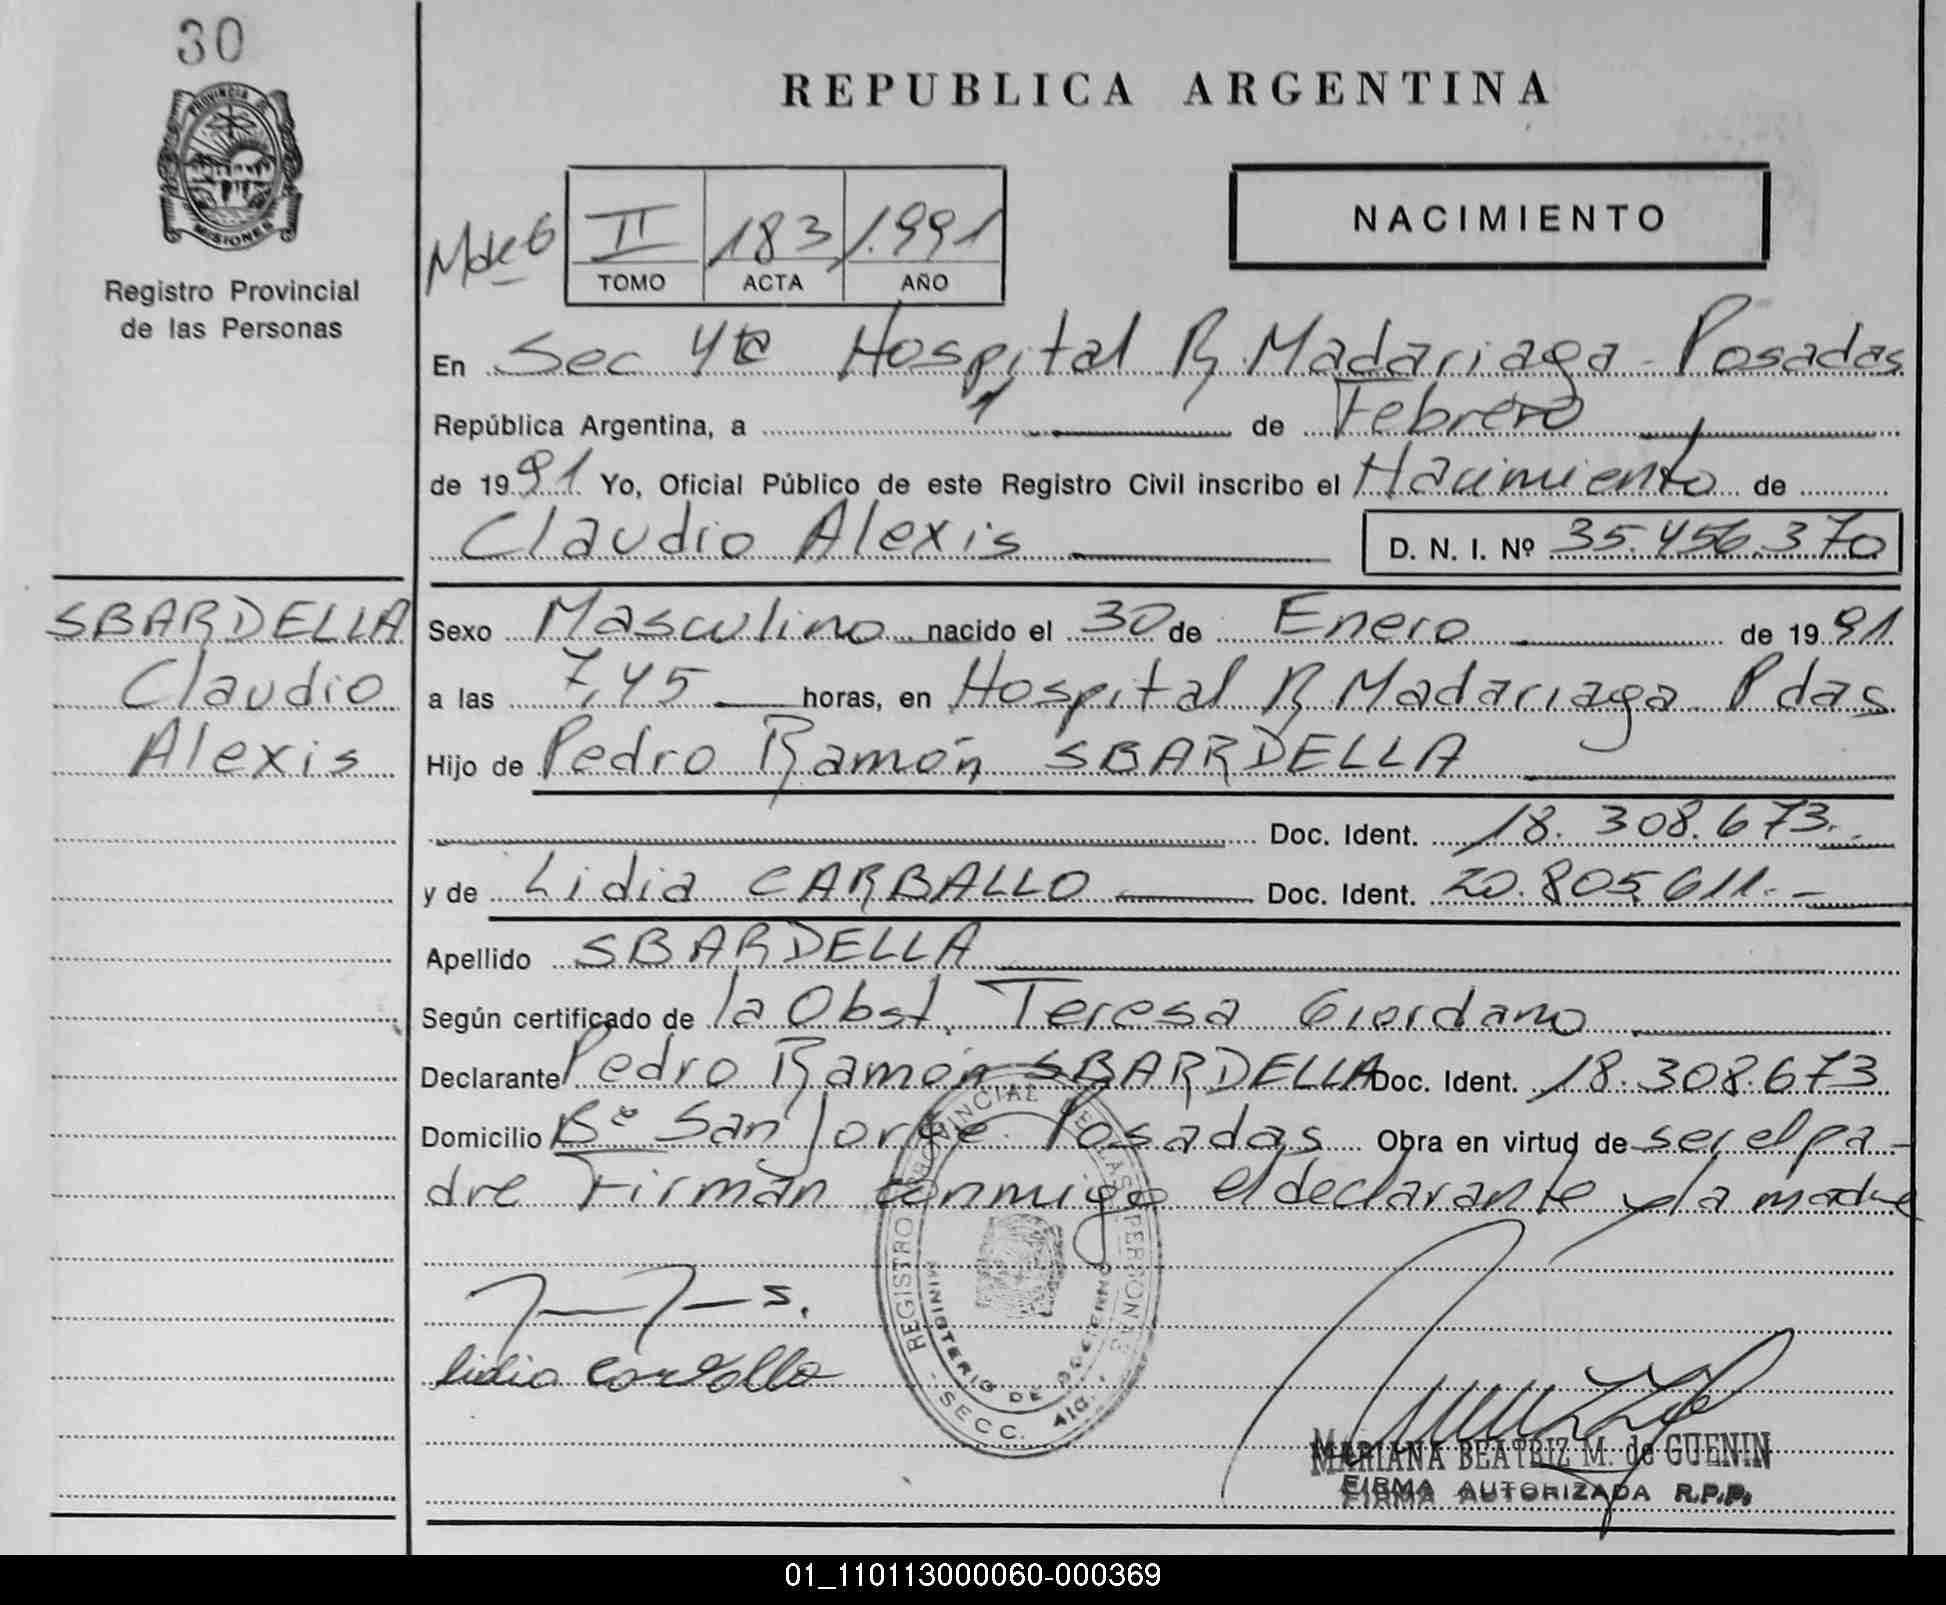 30
PROVINCIA DE
MISIONES
Registro Provincial
de las Personas
REPUBLICA ARGENTINA
NACIMIENTO
II 183 1.991
TOMO ACTA AÑO
En Sec 4ta Hospital R Madariaga - Posadas
República Argentina, a 1 de Febrero
de 1991 Yo, Oficial Público de este Registro Civil inscribo el Nacimiento de
Claudio Alexis D. N. I. Nº 35.456.370
SBARDELLA
Claudio
Alexis
Sexo Masculino nacido el 30 de Enero de 1991
a las 7,45 horas, en Hospital R Madariaga Pdas
Hijo de Pedro Ramón SBARDELLA
Doc. Ident. 18.308.673.-
y de Lidia CARBALLO Doc. Ident. 20.805.611.-
Apellido SBARDELLA
Según certificado de la Obst. Teresa Giordano
Declarante Pedro Ramón SBARDELLA Doc. Ident. 18.308.673
Domicilio Bº San Jorge Posadas Obra en virtud de ser el pa-
dre Firman conmigo el declarante y la madre
REGISTRO PROVINCIAL DE LAS PERSONAS
MINISTERIO DE GOBIERNO
SECC. 4ta.
Lidia Carballo
MARIANA BEATRIZ M. de GUENIN
FIRMA AUTORIZADA R.P.P.
01_110113000060-000369